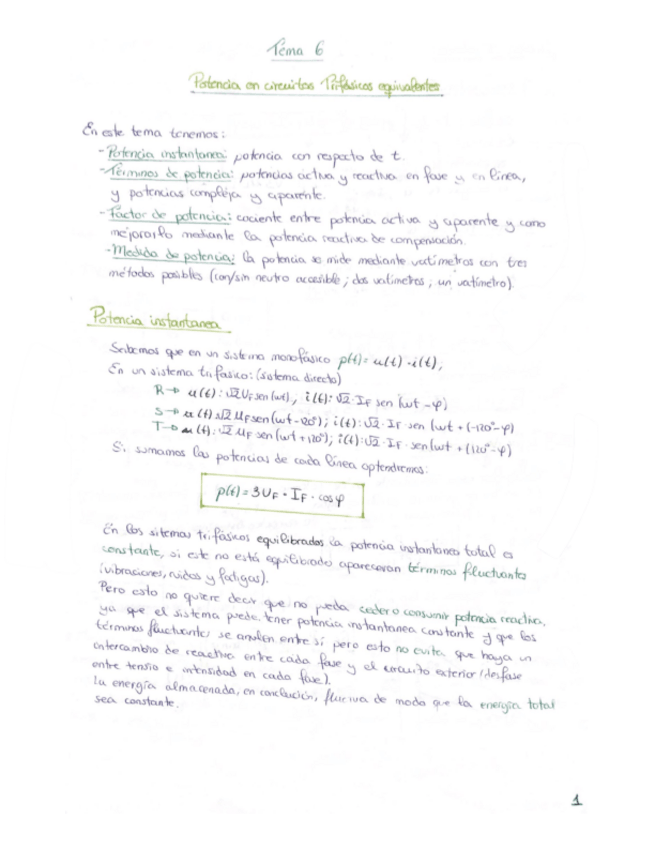 Tema 6
Potencia en circuitos Trifásicos equivalentes
En este tema tenemos:
- Potencia instantanea: potencia con respecto de t.
- Términos de potencia: potencias activa y reactiva en fase y en línea,
y potencias compleja y aparente.
- Factor de potencia: cociente entre potencia activa y aparente y como
mejorarlo mediante la potencia reactiva de compensación.
- Medida de potencia: la potencia se mide mediante vatímetros con tres
métodos posibles (con/sin neutro accesible; dos vatímetros; un vatímetro).
Potencia instantanea
Sabemos que en un sistema monofásico p(t)= u(t)·i(t),
En un sistema trifasico: (sistema directo)
R→ u(t): √2 U_F sen (wt), i(t): √2· I_F sen (wt - φ)
S→ u(t) √2 U_F sen (wt - 120°); i(t): √2· I_F· sen (wt + (-120° - φ)
T→ u(t): √2 U_F sen (wt + 120°); i(t): √2· I_F· sen (wt + (120° - φ)
Si sumamos las potencias de cada línea optendremos:
p(t) = 3U_F · I_F · cos φ
En los sitemas trifásicos equilibrados la potencia instantanea total es
constante, si este no está equilibrado apareceran términos fluctuantes
(vibraciones, ruidos y fatigas).
Pero esto no quiere decir que no pueda ceder o consumir potencia reactiva,
ya que el sistema puede tener potencia instantanea constante y que los
términos fluctuantes se anulen entre sí pero esto no evita que haya un
intercambio de reactiva entre cada fase y el circuito exterior (desfase
entre tensio e intensidad en cada fase).
La energía almacenada, en conclusión, de modo que la energía total
sea constante.
1